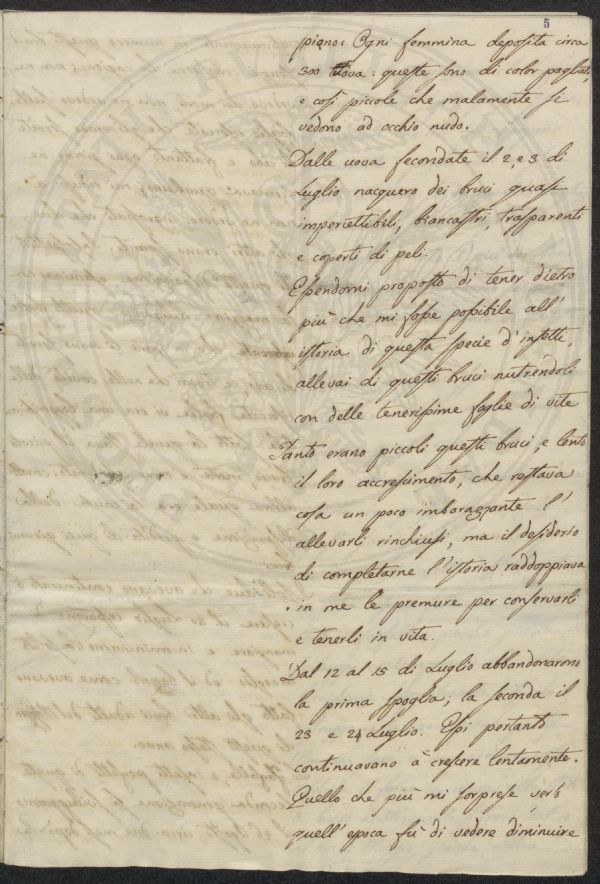 5
piano: Ogni femmina deposita circa
300 uova: queste sono di color pagliato,
e così piccole che malamente si
vedono ad occhio nudo.
Dalle uova fecondate il 2, e 3 di
Luglio nacquero dei bruci quasi
impercettibili, biancastri, trasparenti
e coperti di peli.
Essendomi proposto di tener dietro
più che mi fosse possibile all'
istoria di questa specie d'insetti,
allevai di questi bruci nutrendoli
con delle tenerissime foglie di vite
Tanto erano piccoli questi bruci, e lento
il loro accrescimento, che restava
cosa un poco imbarazzante l'
allevarli rinchiusi, ma il desiderio
di completarne l'istoria raddoppiava
in me le premure per conservarli
e tenerli in vita.
Dal 12 al 15 di Luglio abbandonarono
la prima spoglia; la seconda il
23 e 24 Luglio. Essi pertanto
continuavano à crescere lentamente.
Quello che più mi sorprese verso
quell'epoca fù di vedere diminuire